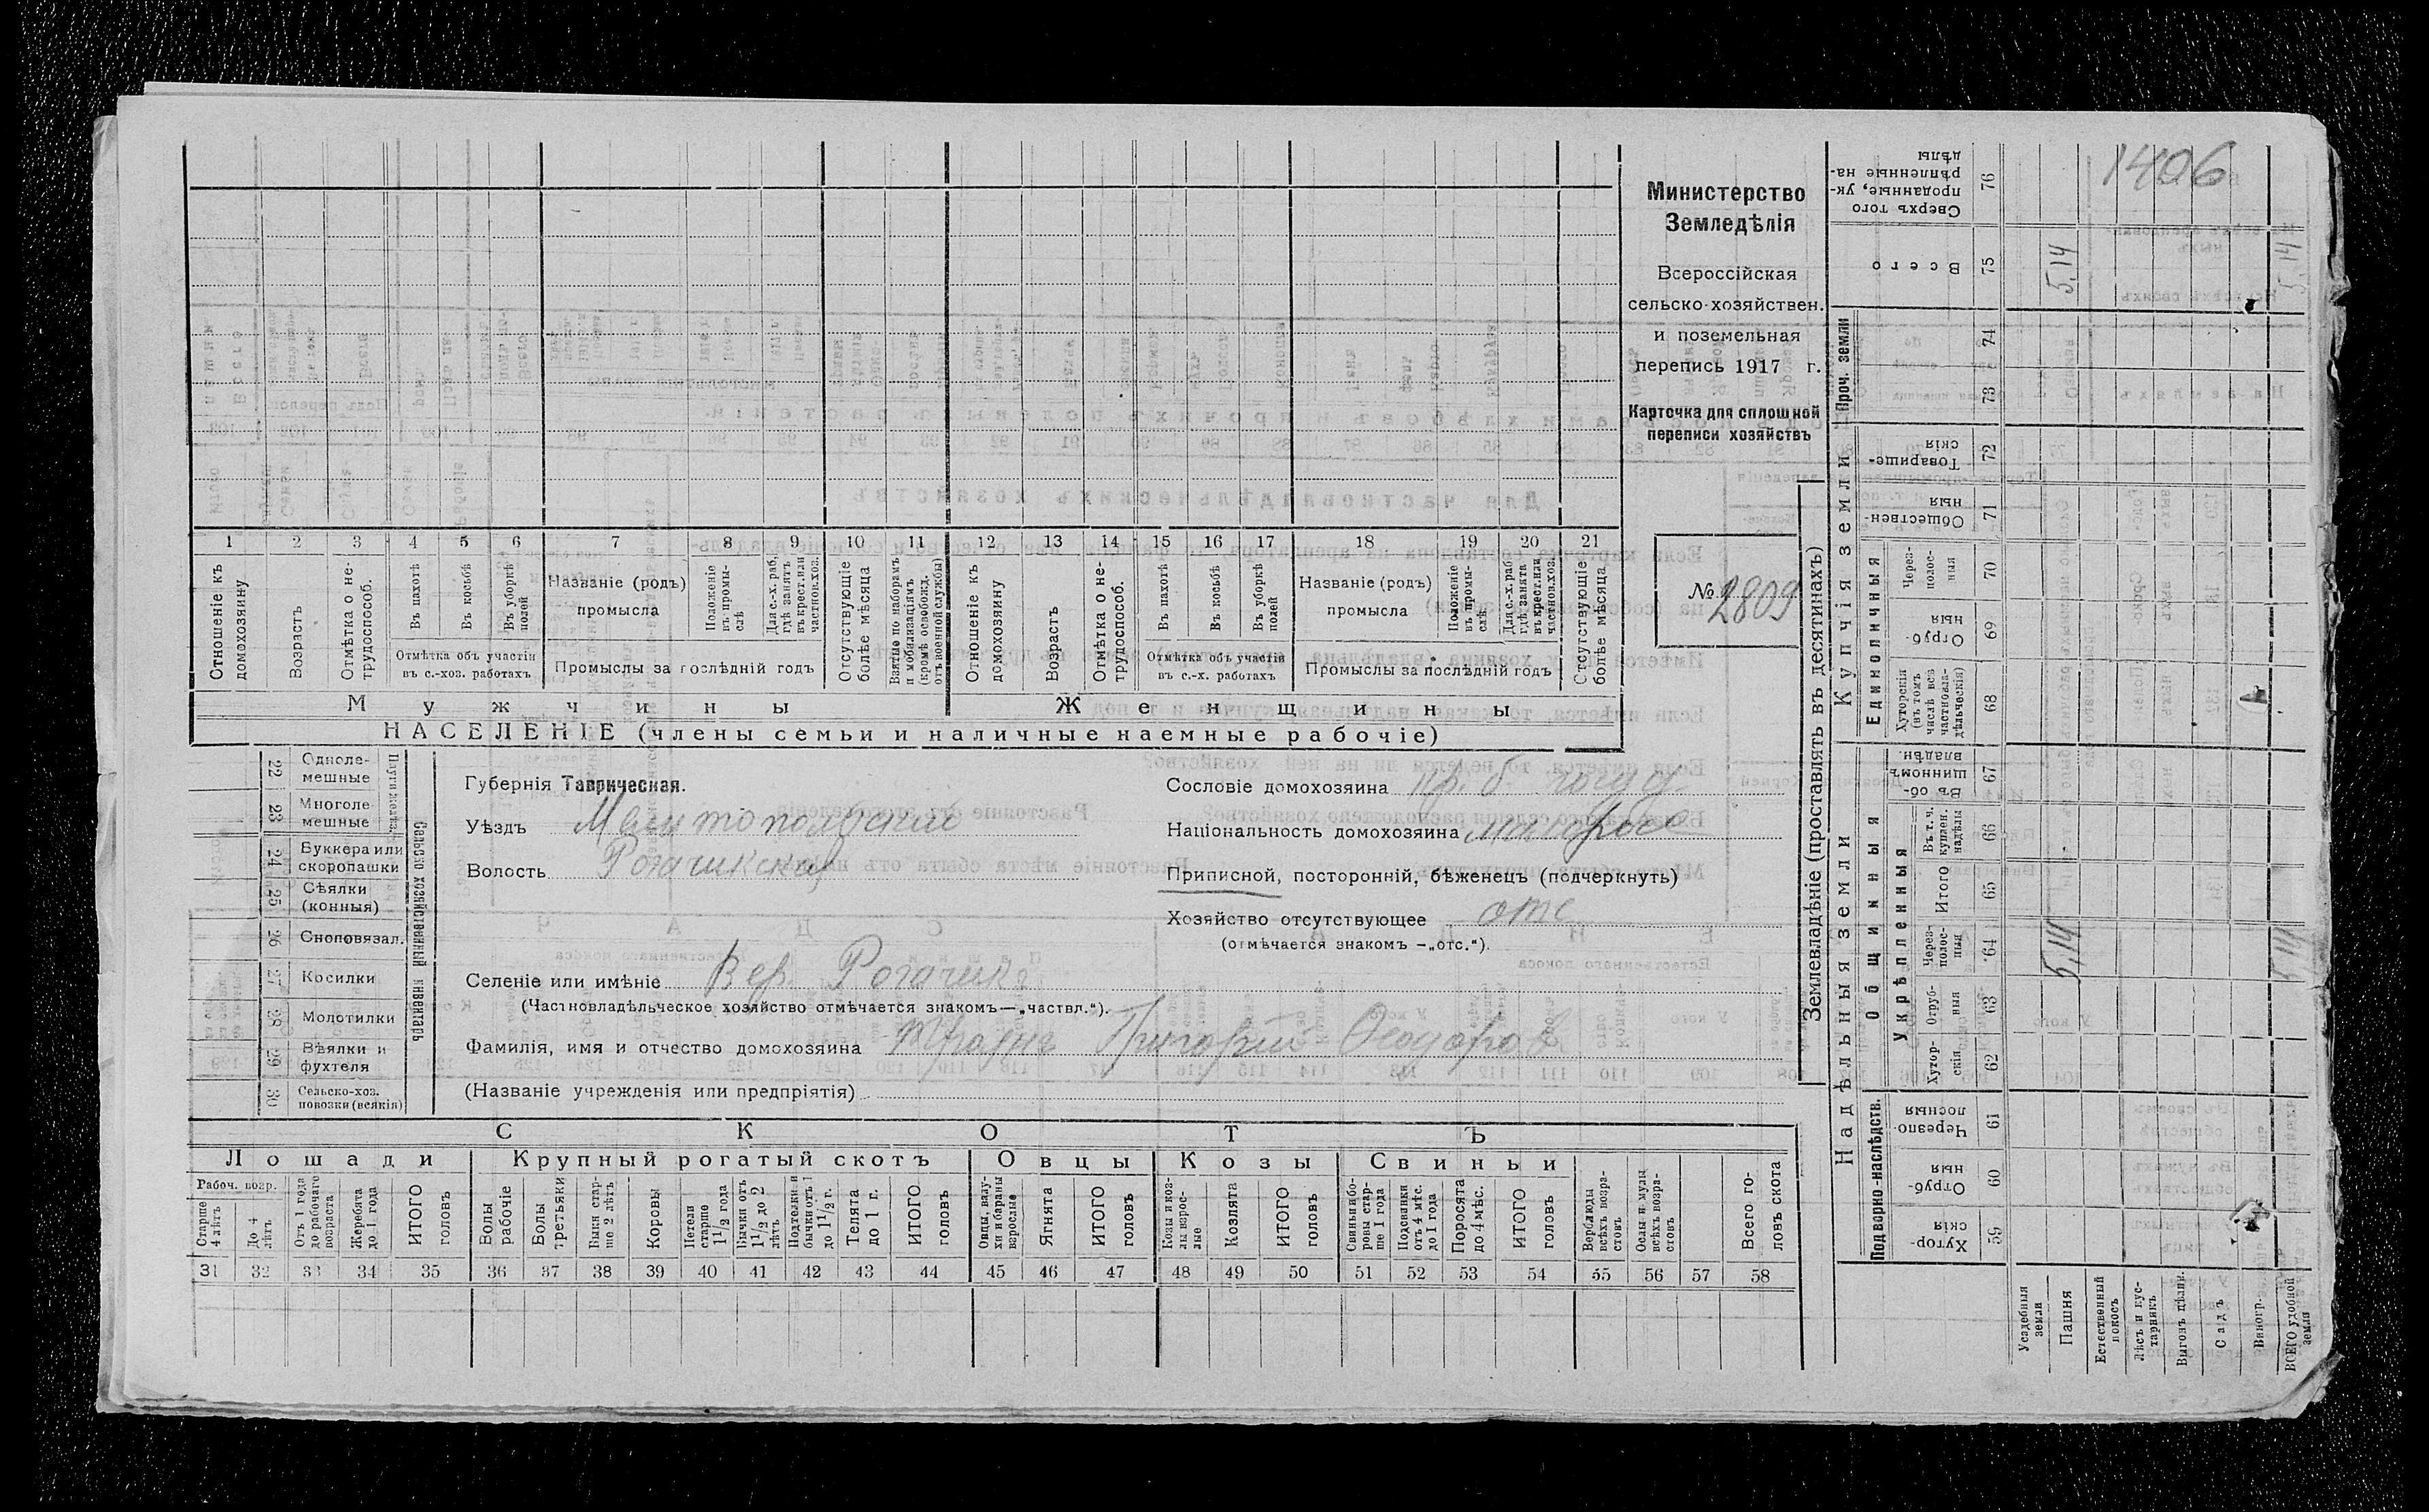 1406
Министерство
Земледѣлія
Всероссійская
сельско-хозяйствен.
и поземельная
перепись 1917 г.
Карточка для сплошной
переписи хозяйствъ
№ 2809
1 2 3 4 5 6 7 8 9 10 11 12 13 14 15 16 17 18 19 20 21
Отношеніе къ домохозяину
Возрастъ
Отмѣтка о не-трудоспособ.
Въ пахотѣ
Въ косьбѣ
Въ уборкѣ полей
Отмѣтка объ участіи въ с.-хоз. работахъ
Названіе (родъ) промысла
Положеніе въ промы-слѣ
Для с.-х. раб. гдѣ занятъ въ крест. или частнов. хоз.
Промыслы за послѣдній годъ
Отсутствующіе болѣе мѣсяца
Взятые по наборамъ и мобилизаціямъ (кромѣ освобожд. отъ военной службы)
Отношеніе къ домохозяину
Возрастъ
Отмѣтка о не-трудоспособ.
Въ пахотѣ
Въ косьбѣ
Въ уборкѣ полей
Отмѣтка объ участіи въ с.-х. работахъ
Названіе (родъ) промысла
Положеніе въ промы-слѣ
Для с.-х. раб. гдѣ занята въ крест. или частнов. хоз.
Промыслы за послѣдній годъ
Отсутствующіе болѣе мѣсяца
Мужчины Женщины
НАСЕЛЕНІЕ (члены семьи и наличные наемные рабочіе)
Сельско хозяйственный инвентарь
Плуги желѣз.
22 Одноле-мешные
23 Многоле-мешные
24 Буккера или скоропашки
25 Сѣялки (конныя)
26 Сноповязал.
27 Косилки
28 Молотилки
29 Вѣялки и фухтеля
30 Сельско-хоз. повозки (всякія)
Губернія Таврическая.
Уѣздъ Мелитопольскій
Волость Рогачикская
Сословіе домохозяина кр. б. госуд.
Національность домохозяина малоросс
Приписной, посторонній, бѣженецъ (подчеркнуть)
Хозяйство отсутствующее отс
(отмѣчается знакомъ —„отс.“).
Селеніе или имѣніе Вер. Рогачикъ
(Частновладѣльческое хозяйство отмѣчается знакомъ—„частвл.“).
Фамилія, имя и отчество домохозяина Григорій Феодоров
(Названіе учрежденія или предпріятія)
СКОТЪ
Лошади Крупный рогатый скотъ Овцы Козы Свиньи
Рабоч. возр.
Старше 4 лѣтъ
До 4 лѣтъ
Отъ 1 года до рабочаго возраста
Жеребята до 1 года
ИТОГО головъ
Волы рабочіе
Волы третьяки
Быки стар-ше 2 лѣтъ
Коровы
Нетели старше 1½ года
Бычки отъ 1½ до 2 лѣтъ
Подтелки и бычки отъ 1 до 1½ г.
Телята до 1 г.
ИТОГО головъ
Овцы, валу-хи и бараны взрослые
Ягнята
ИТОГО головъ
Козы и коз-лы взрос-лые
Козлята
ИТОГО головъ
Свиньи и бо-ровы стар-ше 1 года
Подсвинки отъ 4 мѣс. до 1 года
Поросята до 4 мѣс.
ИТОГО головъ
Верблюды всѣхъ возра-стовъ
Ослы и мулы всѣхъ возра-стовъ
Всего го-ловъ скота
31 32 33 34 35 36 37 38 39 40 41 42 43 44 45 46 47 48 49 50 51 52 53 54 55 56 57 58
Землевладѣніе (проставлять въ десятинахъ)
Надѣльныя земли
Купчія земли
Подворно-наслѣдств.
Общинныя
Укрѣпленныя
Единоличныя
Проч. земли
Хутор-скія 59
Отруб-ныя 60
Черезпо-лосныя 61
Хутор-скія 62
Отруб-ныя 63
Через-полос-ныя 64
Итого 65
Въ т. ч. куплен. надѣлы 66
Въ об-щинномъ владѣн. 67
Хуторскія (въ томъ числѣ все частновла-дѣльческія) 68
Отруб-ныя 69
Через-полос-ныя 70
Обществен-ныя 71
Товарище-скія 72
73
74
Всего 75
Сверхъ того проданные, ук-рѣпленные на-дѣлы 76
Усадебныя земли
Пашня 5,14 5,14
Естественный покосъ
Лѣсъ и кус-тарникъ
Выгонъ цѣлин.
Садъ
Виногр.
ВСЕГО удобной земли 5,14 5,14